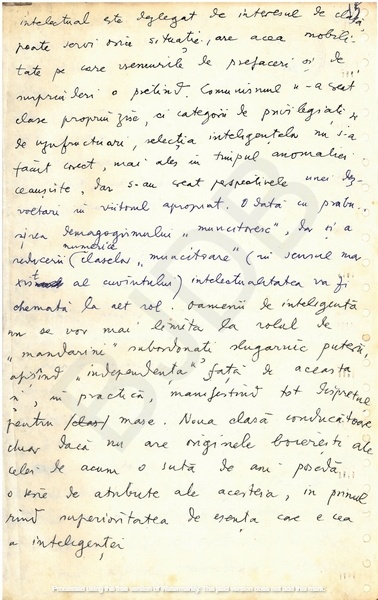 intelectual este dezlegat de interesul de clasă
poate servi orice situație, are acea mobili-
tate pe care vremurile de prefaceri și de
surprinderi o pretind. Comunismul n-a creat
clase propriu zise, ci categorii de privilegiați,
de uzufructuari, selecția inteligențelor nu s-a
făcut corect, mai ales în timpul anomaliei
ceaușiste, dar s-au creat perspectivele unei dez-
voltări în viitorul apropiat. Odată cu prăbu-
șirea demagogismului "muncitoresc", dar și a
numerică
reducerii (claselor "muncitoare" (în sensul ma
al cuvîntului) intelectualitatea va fi
chemată la act rol. Oamenii de inteligență
nu se vor mai limita la rolul de
"mandarini" subordonați slugarnic puterii,
afișînd "independența" față de aceasta
și, în practică, manifestînd tot disprețul
pentru /clas/ mase. Noua clasă conducătoare
chiar dacă nu are originele boierești ale
celei de acum o sută de ani posedă
o serie de atribute ale acesteia, în primul
rînd superioritatea de esență care e cea
a inteligenței